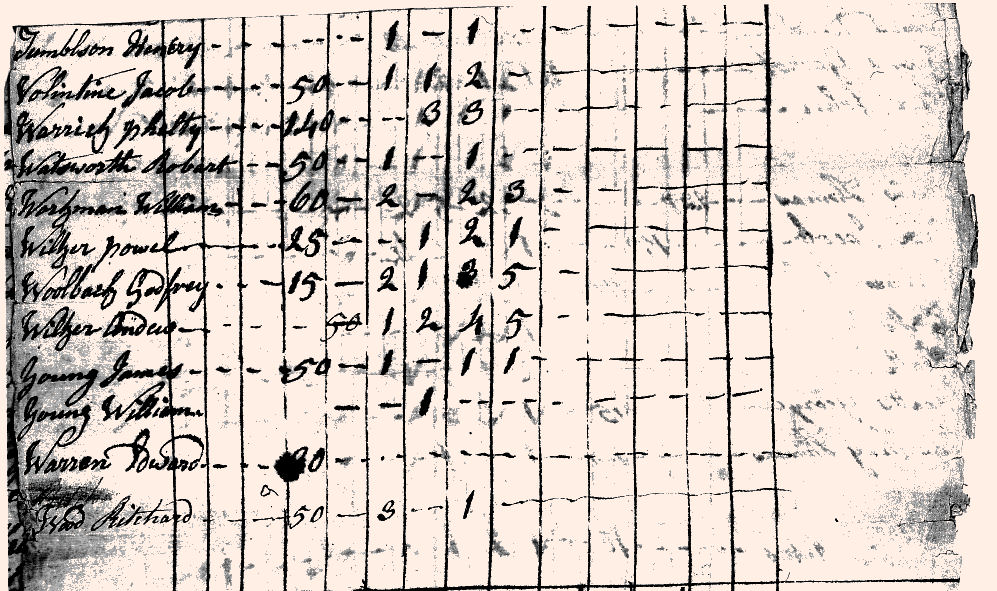 Tumblson Henery - - - - - - 1 - 1 - - - - - -
Volintine Jacob - - - 50 - 1 1 2 - - - - - -
Warrich phelty - - - 140 - - 3 3 - - - - - -
Watsworth Robert - - 50 - 1 - 1 - - - - - -
Wörgman William - - 60 - 2 - 2 3 - - - - -
Wilzer powel - 25 - - 1 2 1 - - - - -
Woolbach Godfrey - - - 15 - 2 1 3 5 - - - - -
Wilzer Andrew - - - - 50 1 2 4 5 - - - - -
Young James - - - 50 - 1 - 1 1 - - - - -
Young William - - 1 - - - - - - -
Warren Edward - - - 20 - - - - - - - - - -
a
Wood Ritchard - - - 50 - 3 - 1 - - - - - -